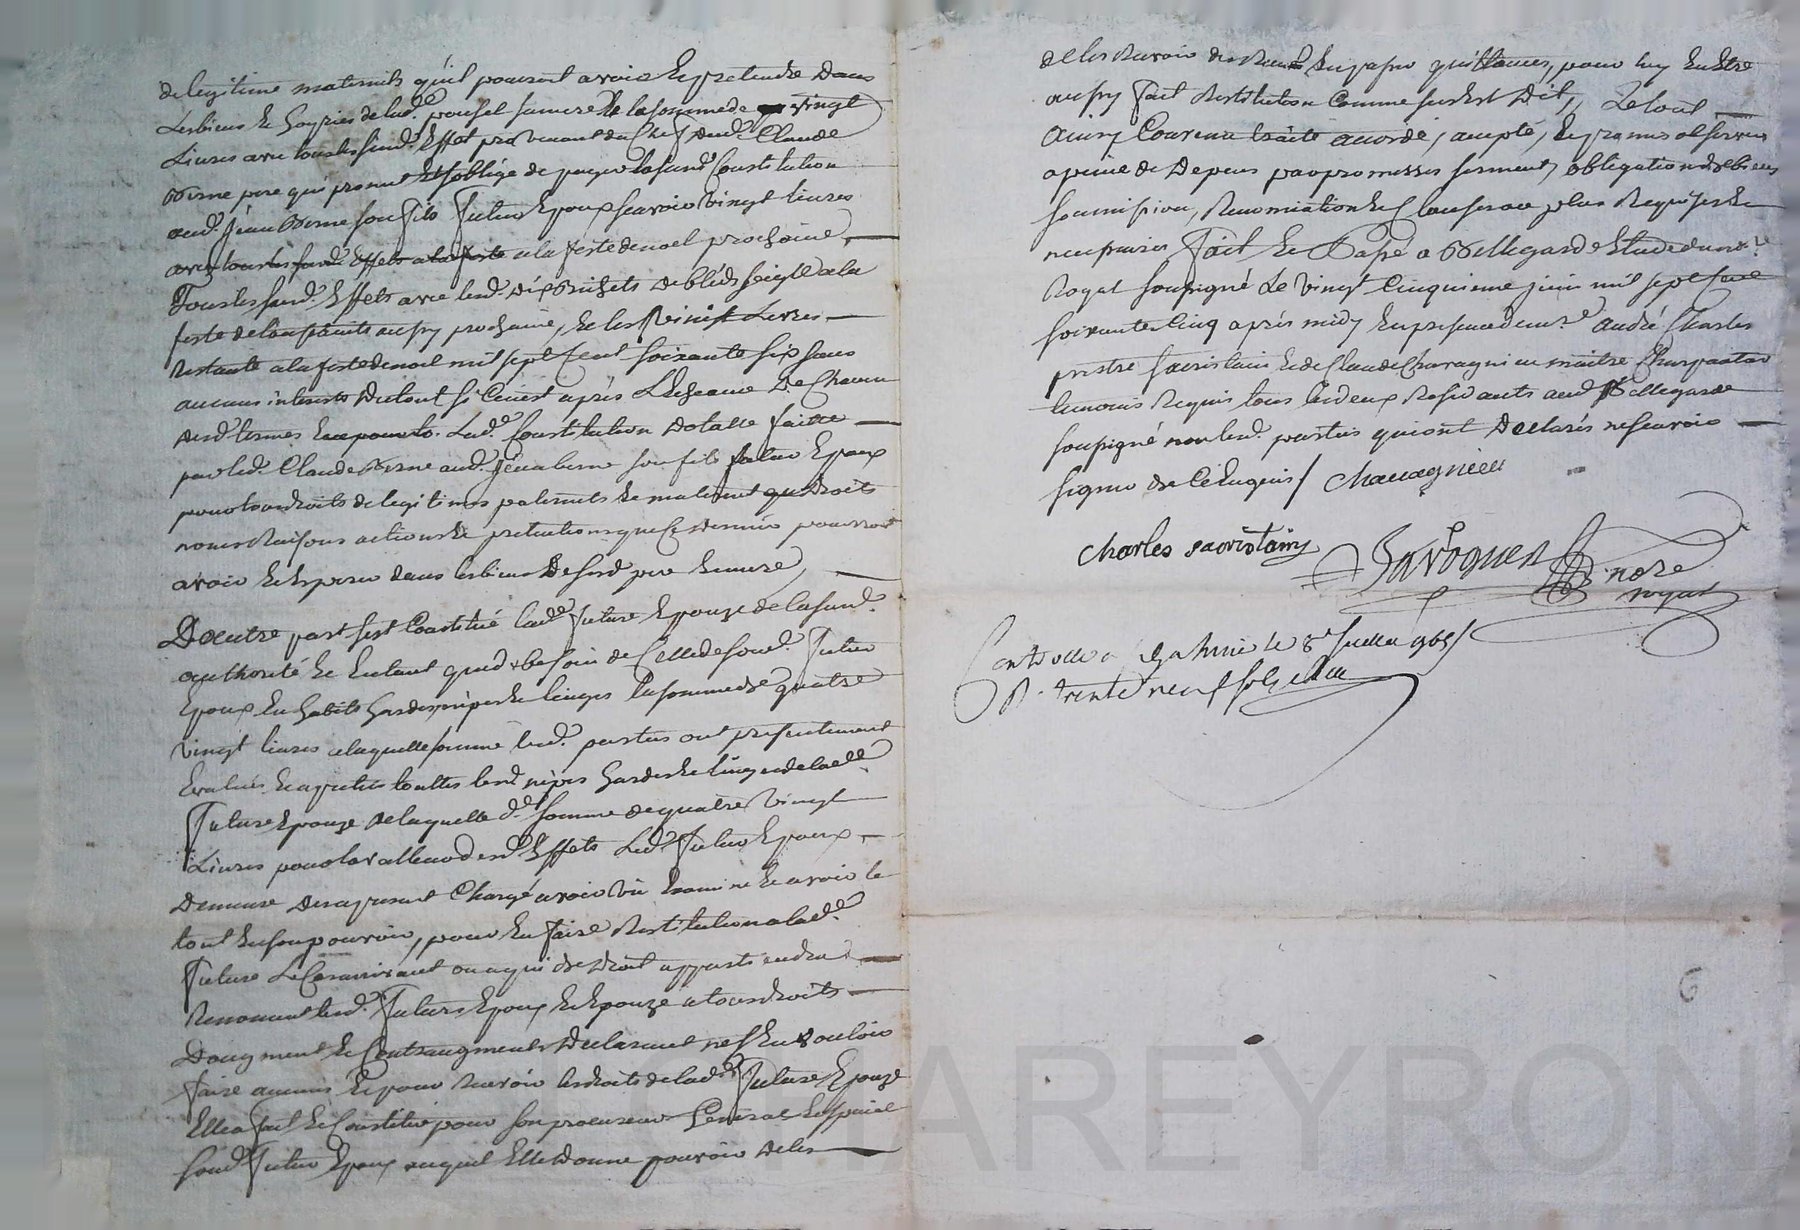 de legitime maternels qu'il pourroit avoir et pretendre dans
les biens et hoyries de lad.e sa mere la somme de vingt
Livres avec tous les susd. Effet provenant du Chef dud. Claude
Berne pere qui promet et s'oblige de payer lasusd. Constitution
aud. Jean Berne son fils futur Epoux scavoir vingt livres
avec tous les susd. Effets a la feste a la feste de noel prochaine,
Tous les susd. Effets avec lesd. dix Bichets de bled seigle a la
feste de la toussaints aussy prochaine, et les vingt Livres
Restante a la feste de noel mil sept Cent soixante six sans
aucuns interests du tout si Ce n'est après L'Echeance De Chacun
desd. termes Lad.e Constitution dotalle faitte
par led. Claude Berne aud. Jean berne son fils futur Epoux
pour tous droits de legitimes paternels et maternels droits
noms Raisons actions et pretentions que Ce dernier pourroit
avoir et Esperer dans les biens De sesd. pere et mere,
D'autre part s'est Constitué lad.e future Epouze de lasusd.
authorité et Entant que d. besoin de Celle de sond. futur
Epoux En habits hardes nipes et linges la somme de quatre
vingt livres a laquelle somme lesd. parties ont presentement
Evalués et apretiés touttes lesd. nipes hardes et linges de lad.e
future Epouze de laquelle d.e somme de quatre vingt
Livres pour la valleur desd. Effets Led. futur Epoux
Demeure des a present Chargé avoir vû Examiné et avoir le
tout En son pouvoir, pour En faire Restitution a lad.e
future Le Cas arrivant ou a qui de droit appartiendra
Renoncent lesd. futurs Epoux et Epouze a tous droits
D'augment et Contraugment Declarant ne s'En vouloir
faire aucuns et pour Recevoir les droits de lad.e future Epouze
Elle a fait et Constitué pour son procureur General et special
sond. futur Epoux auquel Elle donne pouvoir de les
de les Recevoir En passer quittances, pour luy En Etre
aussy fait Restitution Comme sus Est Dit, Le tout
ainsy Convenu traité accordé, accepté, et promis observer
a peine de Depens par promesses serment, obligation de biens
soumission, Renonciation et Clauses au plus Requises et
necessaires fait et Passé a Bellegarde Etude du no.re
Royal soussigné Le vingt Cinquieme juin mil sept Cent
soixante Cinq après midy En presence de m.re André Charles
prestre sacristain et de Claude Chavagnieu maitre Charpantier
temoins Requis tous les deux Residants aud. Bellegarde
soussigné non lesd. parties qui ont Declarés ne scavoir
signer de Ce Enquis / Chavagnieu
Charles sacristain
no.re
royal
Controllé a le 8e juillet 1765
R. trente neuf sols
6
CHAREYRON